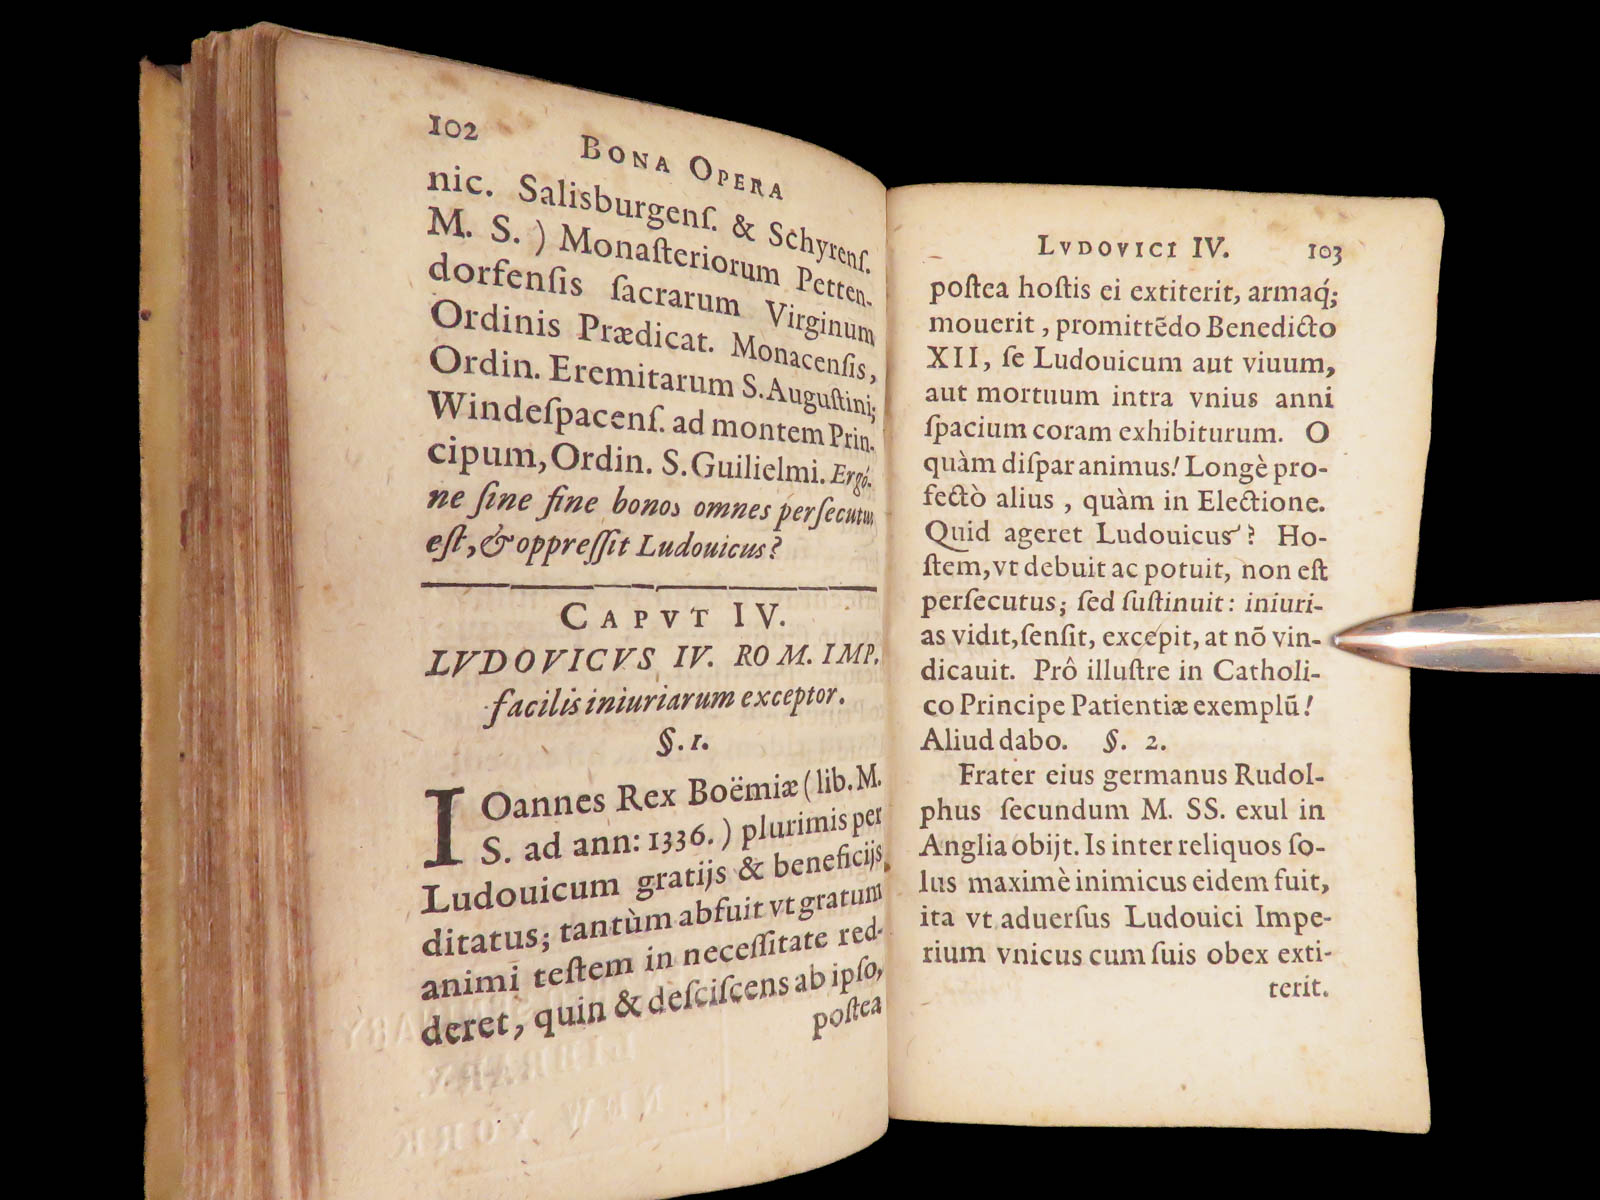 102 BONA OPERA
nic. Saliſburgenſ. & Schyrenſ.
M. S. ) Monaſteriorum Petten-
dorfenſis ſacrarum Virginum
Ordinis Prædicat. Monacenſis,
Ordin. Eremitarum S. Auguſtini;
Windeſpacenſ. ad montem Prin-
cipum, Ordin. S. Guilielmi. Ergó-
ne ſine fine bonos omnes perſecutus
eſt, & oppreſſit Ludouicus?
CAPVT IV.
LVDOVICVS IV. ROM. IMP.
facilis iniuriarum exceptor.
§. 1.
IOannes Rex Boëmiæ ( lib. M.
S. ad ann: 1336. ) plurimis per
Ludouicum gratijs & beneficijs
ditatus; tantùm abfuit vt gratum
animi teſtem in neceſſitate red-
deret, quin & deſciſcens ab ipſo,
poſtea
LVDOVICI IV. 103
poſtea hoſtis ei extiterit, armaq́;
mouerit , promittẽdo Benedicto
XII, ſe Ludouicum aut viuum,
aut mortuum intra vnius anni
ſpacium coram exhibiturum. O
quàm diſpar animus! Longè pro-
fectò alius , quàm in Electione.
Quid ageret Ludouicus ? Ho-
ſtem, vt debuit ac potuit, non eſt
perſecutus; ſed ſuſtinuit: iniuri-
as vidit, ſenſit, excepit, at nõ vin-
dicauit. Prô illuſtre in Catholi-
co Principe Patientiæ exemplũ!
Aliud dabo. §. 2.
Frater eius germanus Rudol-
phus ſecundum M. SS. exul in
Anglia obijt. Is inter reliquos ſo-
lus maximè inimicus eidem fuit,
ita vt aduerſus Ludouici Impe-
rium vnicus cum ſuis obex exti-
terit.
LIBRARY
NEW YORK